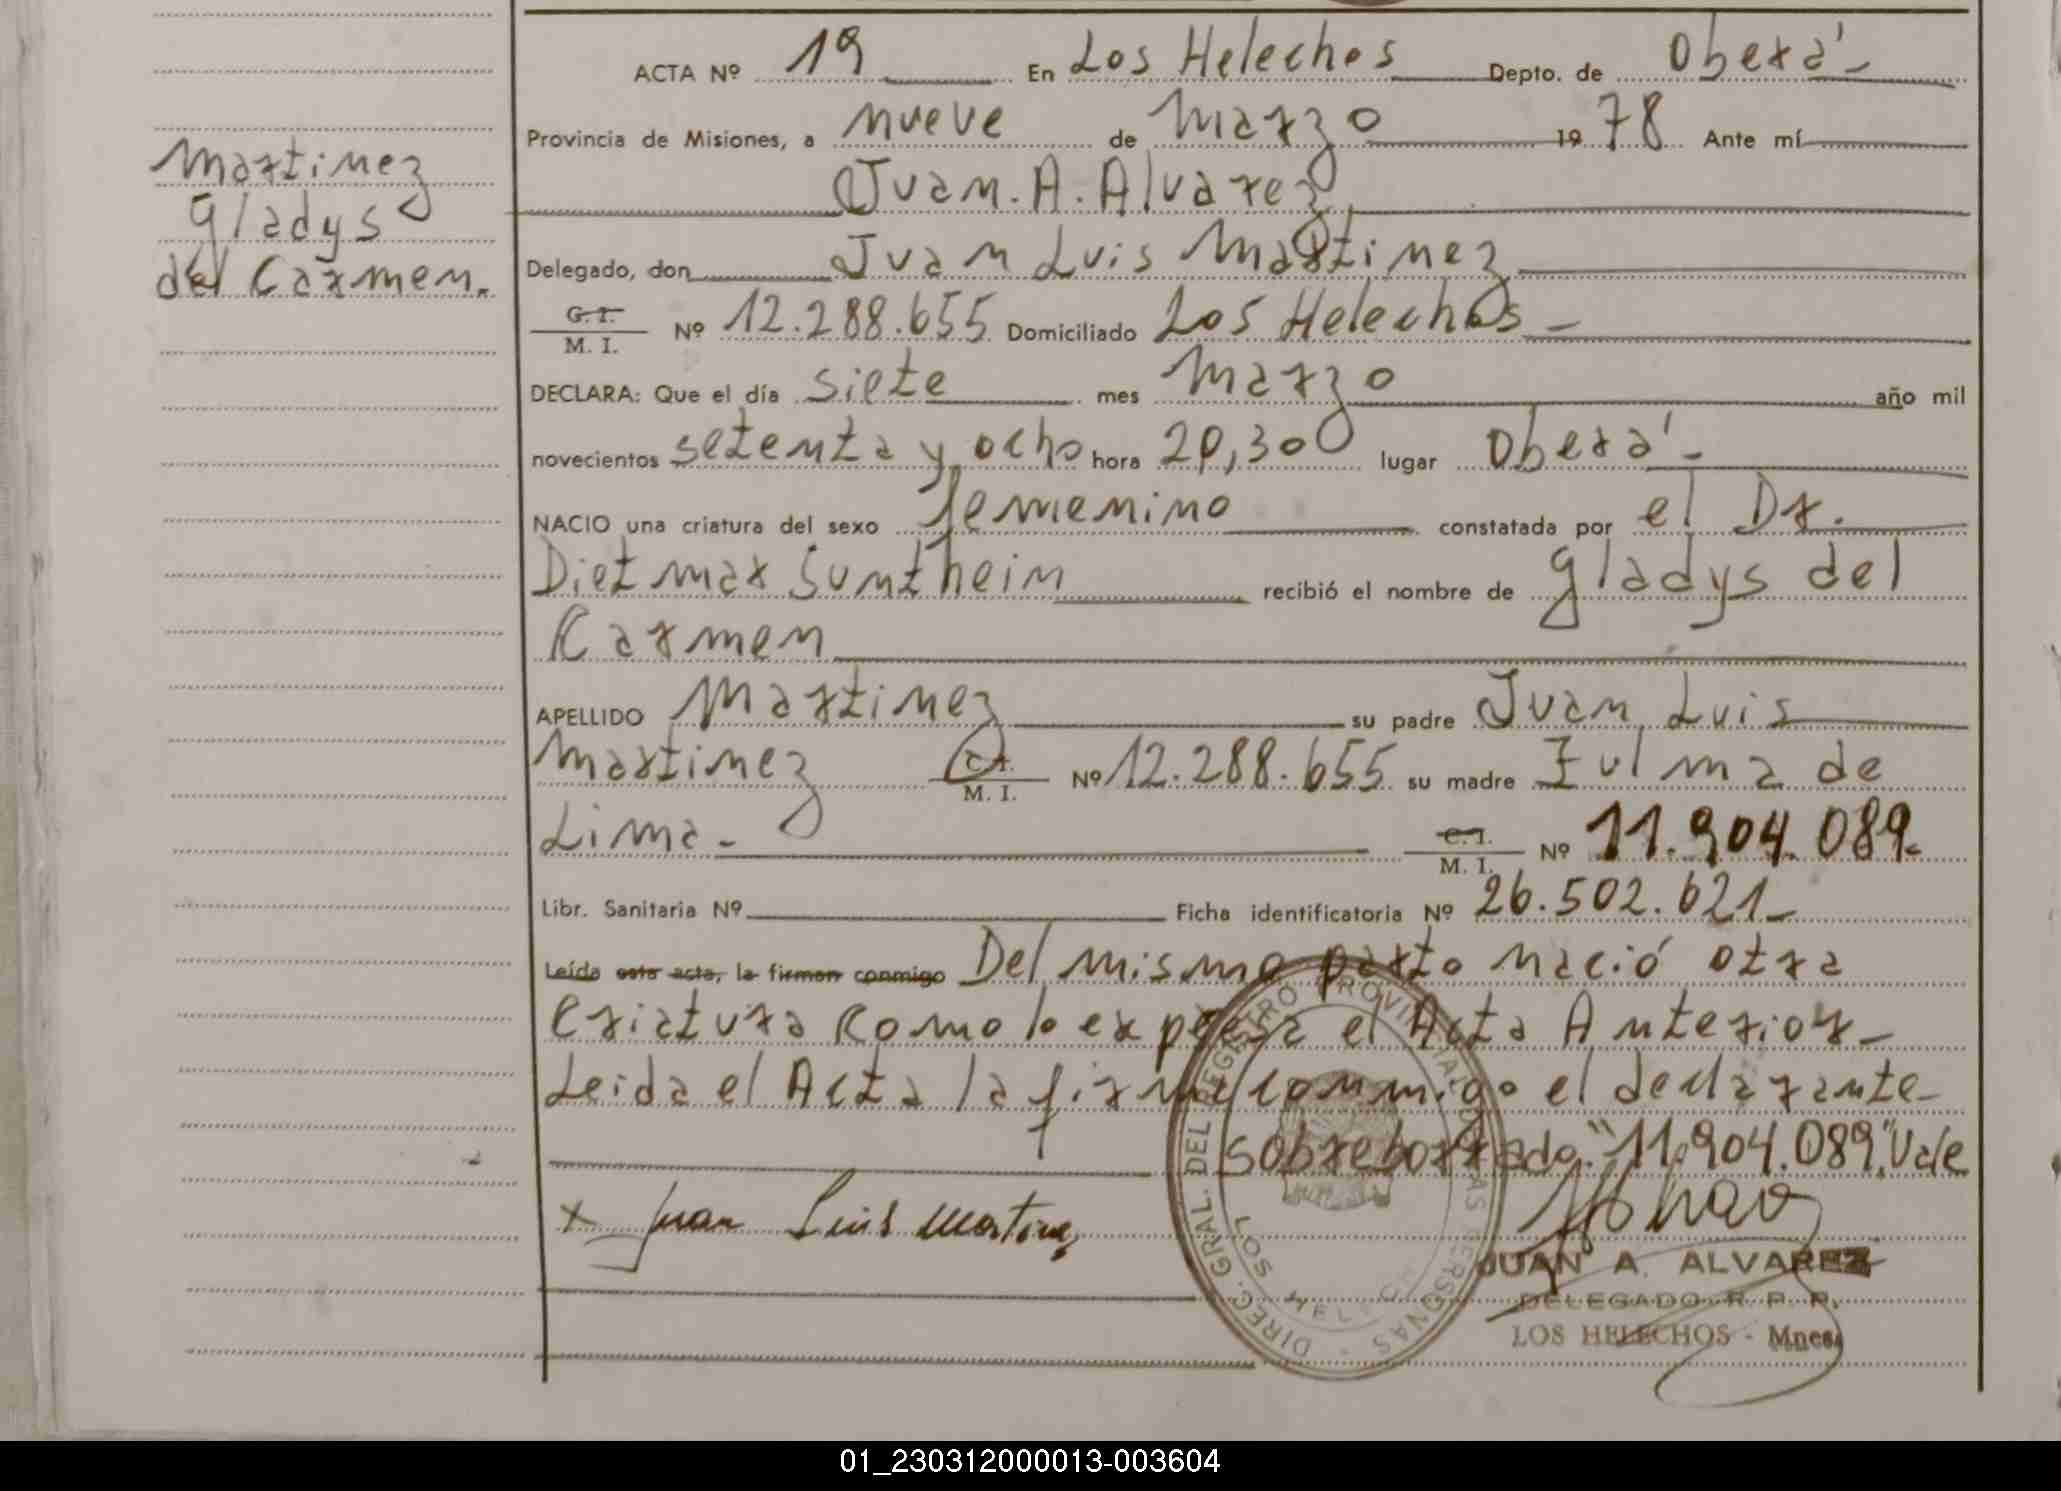 ACTA Nº 19 En Los Helechos Depto. de Oberá-
Provincia de Misiones, a nueve de Marzo 1978 Ante mí
Juan. A. Alvarez
Martinez
Gladys
del Carmen.
Delegado, don Juan Luis Martinez
C. I.
M. I. Nº 12.288.655 Domiciliado Los Helechos-
DECLARA: Que el día siete mes Marzo año mil
novecientos setenta y ocho hora 20,30 lugar Oberá-
NACIO una criatura del sexo femenino constatada por el Dr.
Dietmar Suntheim recibió el nombre de Gladys del
Carmen
APELLIDO Martinez su padre Juan Luis
Martinez C. I. M. I. Nº 12.288.655 su madre Zulma de
Lima- C. I. M. I. Nº 11.904.089.
Libr. Sanitaria Nº Ficha identificatoria Nº 26.502.621-
Leída esta acta, la firman conmigo Del mismo parto nació otra
criatura como lo expresa el Acta Anterior-
Leida el Acta la firma conmigo el declarante-
sobreborrado "11.904.089" Vale
x Juan Luis Martinez
DIREC. GRAL. DEL REGISTRO PROVINCIAL DE LAS PERSONAS
LOS HELECHOS
JUAN A. ALVAREZ
DELEGADO R. P. P.
LOS HELECHOS - Mnes.
01_230312000013-003604